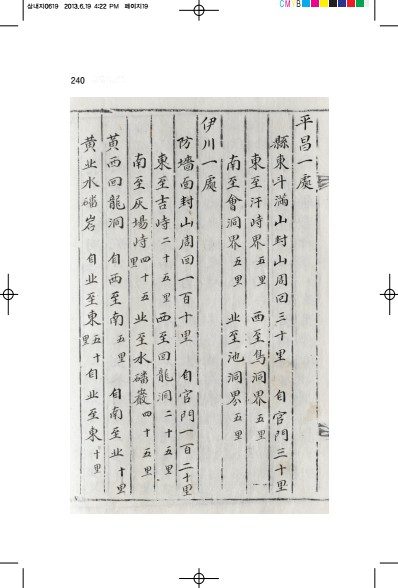 삼내지0619 2013.6.19 4:22 PM 페이지19
CMY
240
平昌一處
縣東斗滿山封山周回三十里 自官門三十里
東至汗峙界五里 西至馬洞界五里
南至會洞界五里 北至池洞界五里
伊川一處
防墻面封山周回一百十里 自官門一百二十里
東至吉峙二十五里 西至回龍洞二十五里
南至灰場峙四十五里 北至水磻巖四十五里
黃西回龍洞 自西至南五里 自南至北十里
黃北水磻岩 自北至東五十里 自北至東十里